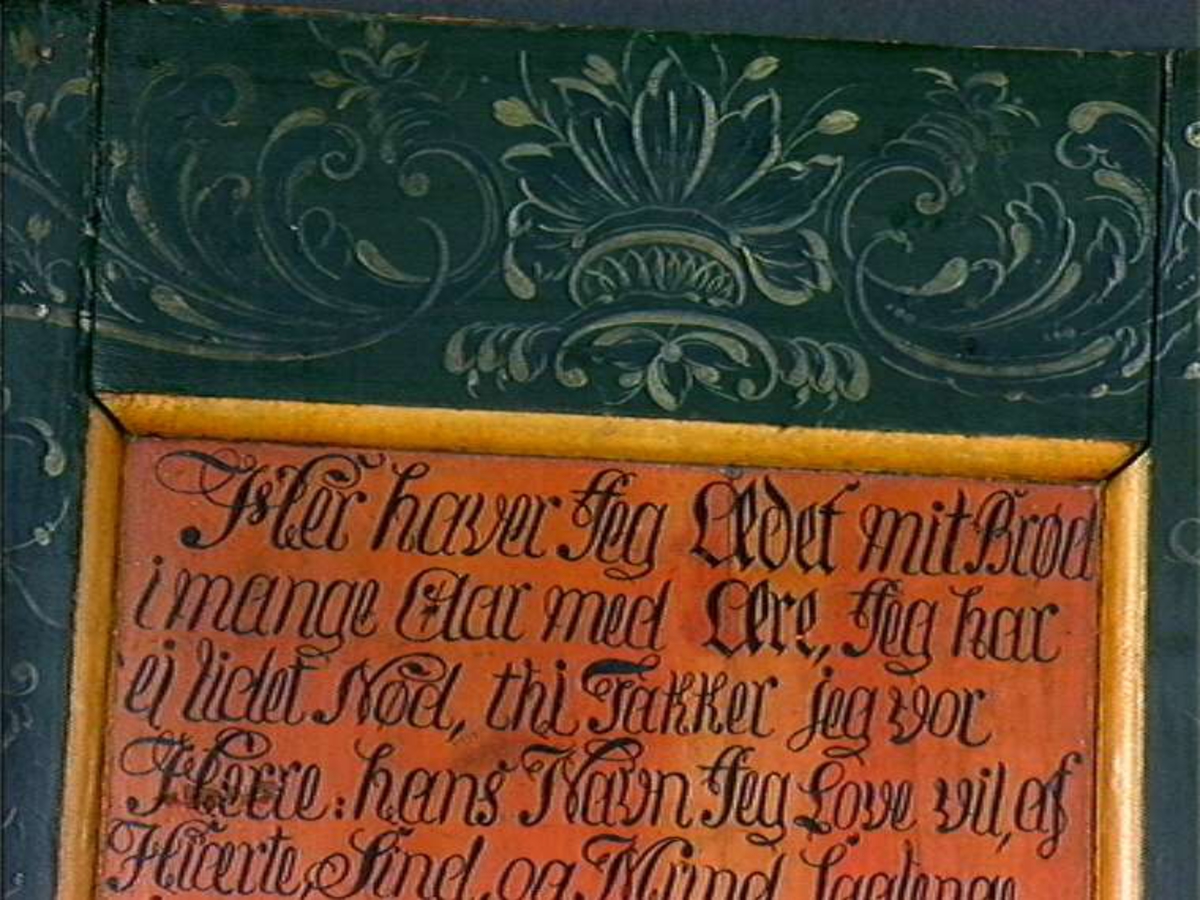 Her haver Jeg Ædet mit Brød
i mange Aar med Ære, Jeg har
ej lidet Nød, thi Takker jeg vor
Herre: hans Navn Jeg Love vil, af
Hierte, Sind, og Mund